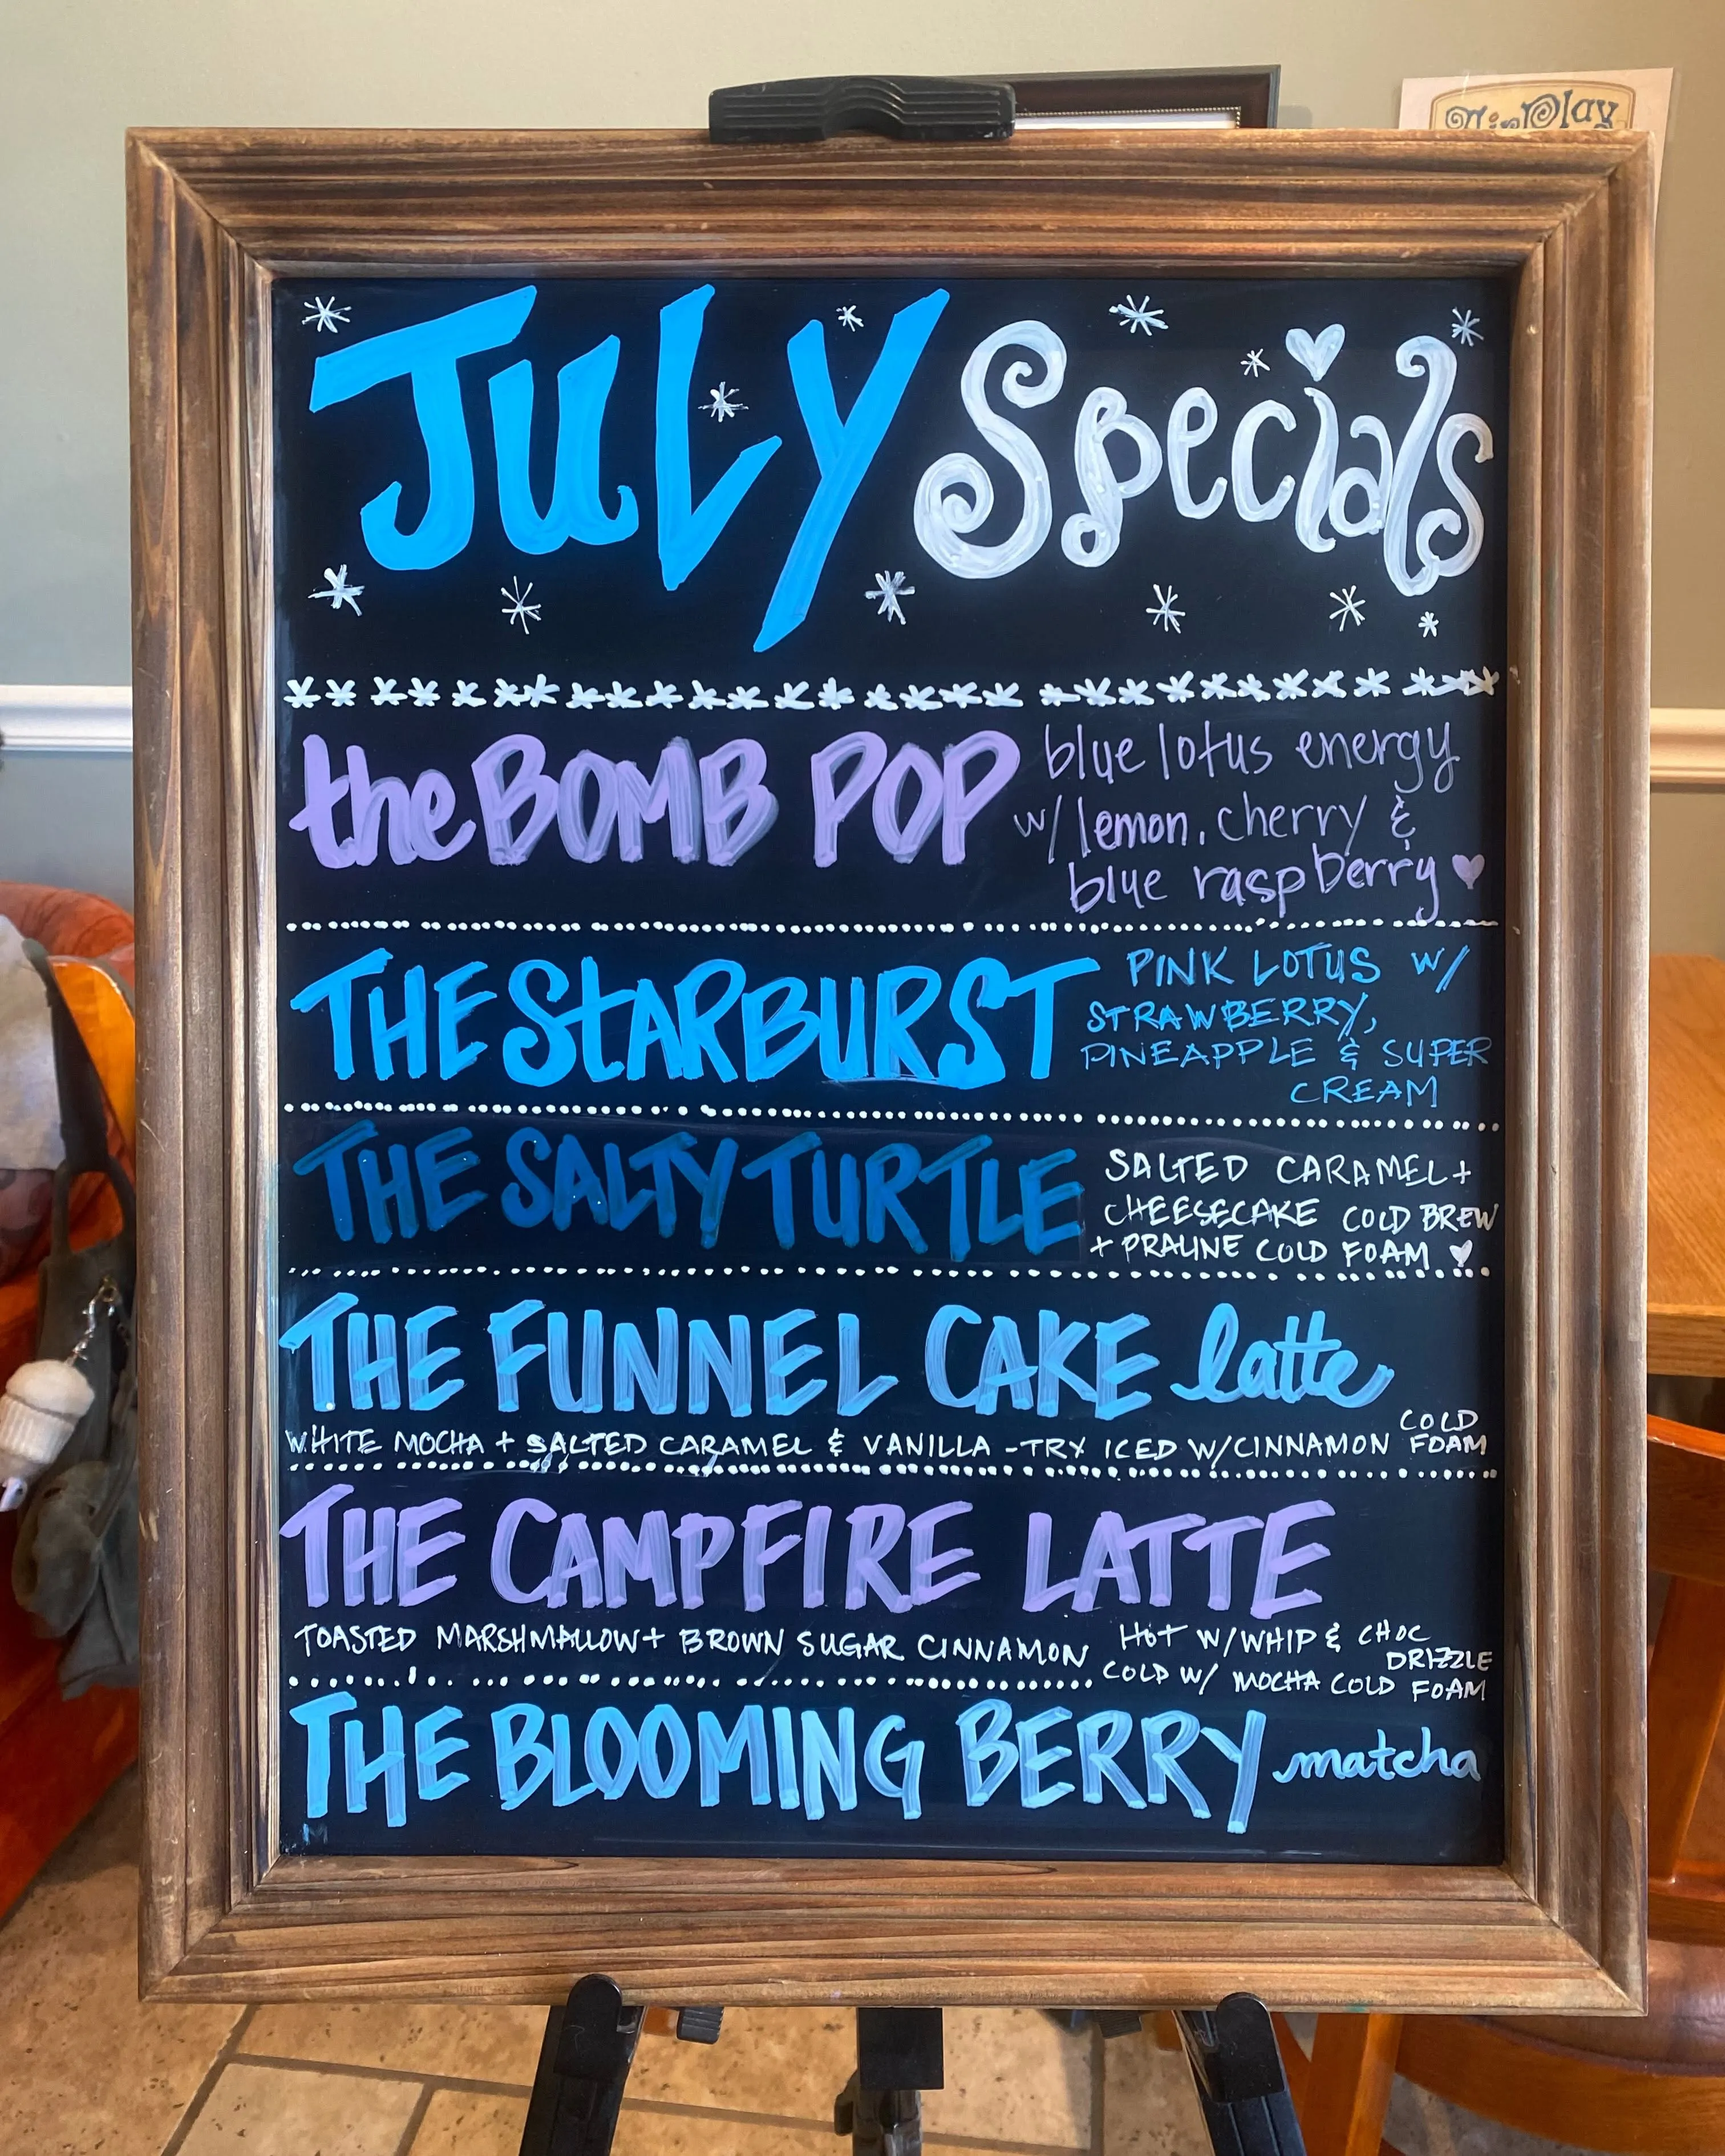 AirPlay
JULY Specials
the BOMB POP
blue lotus energy
w/ lemon, cherry &
blue raspberry
THE STARBURST
PINK LOTUS W/
STRAWBERRY,
PINEAPPLE & SUPER
CREAM
THE SALTY TURTLE
SALTED CARAMEL +
CHEESECAKE COLD BREW
+ PRALINE COLD FOAM
THE FUNNEL CAKE latte
WHITE MOCHA + SALTED CARAMEL & VANILLA - TRY ICED W/ CINNAMON COLD
FOAM
THE CAMPFIRE LATTE
TOASTED MARSHMALLOW + BROWN SUGAR CINNAMON
HOT W/ WHIP & CHOC
DRIZZLE
COLD W/ MOCHA COLD FOAM
THE BLOOMING BERRY matcha